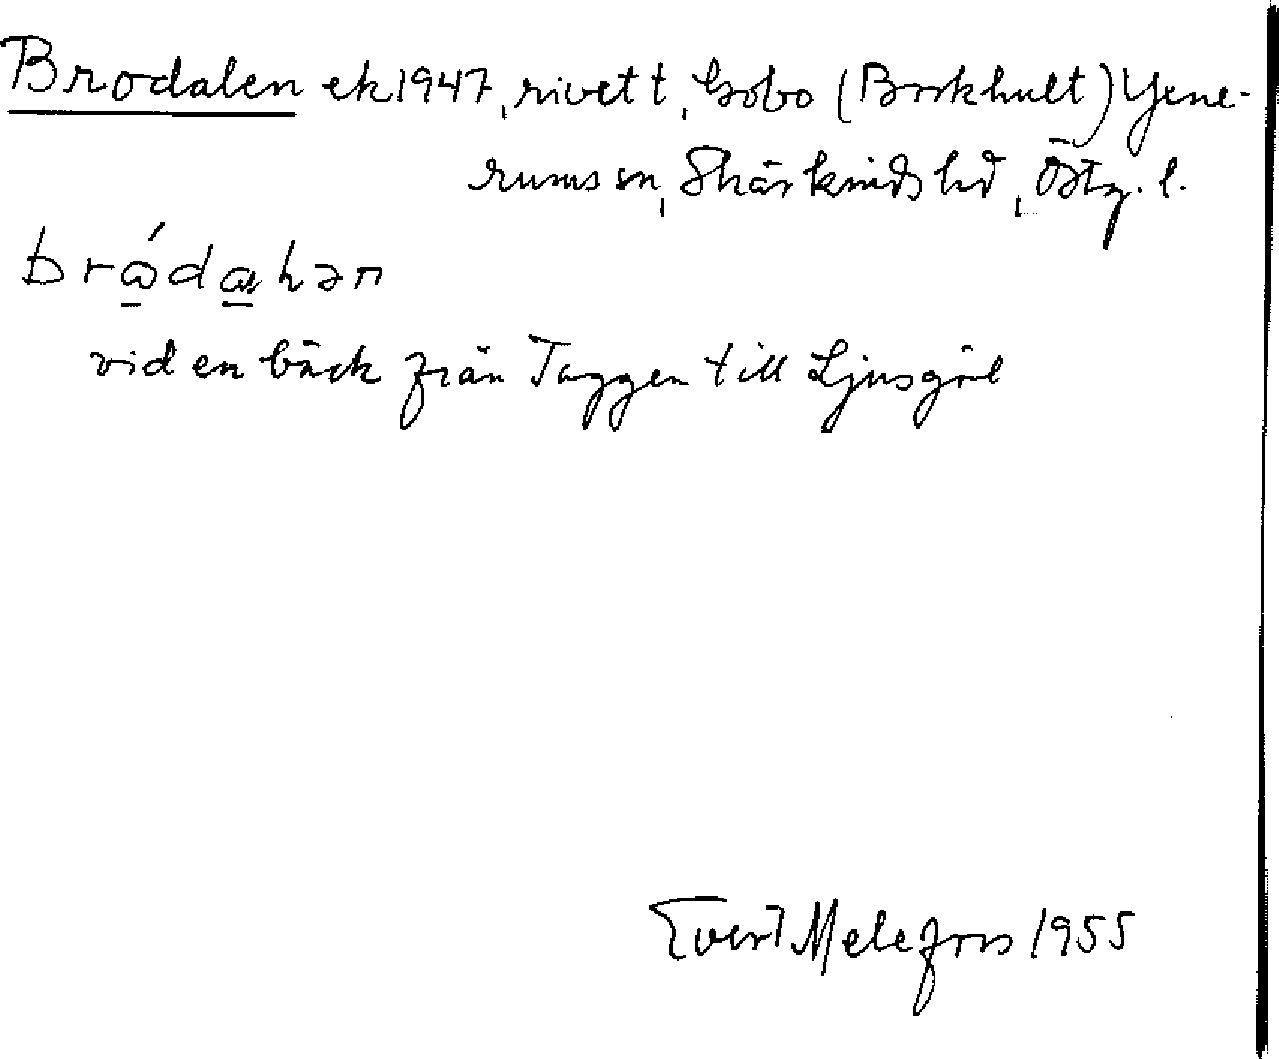 Brodalen ek 1947, rivet t, Gobo (Borkhult) Yxne-
rums sn, Skärkinds hd, Östg. l.
vid en bäck från Taggen till Ljusgöl
Evert Melefors 1955